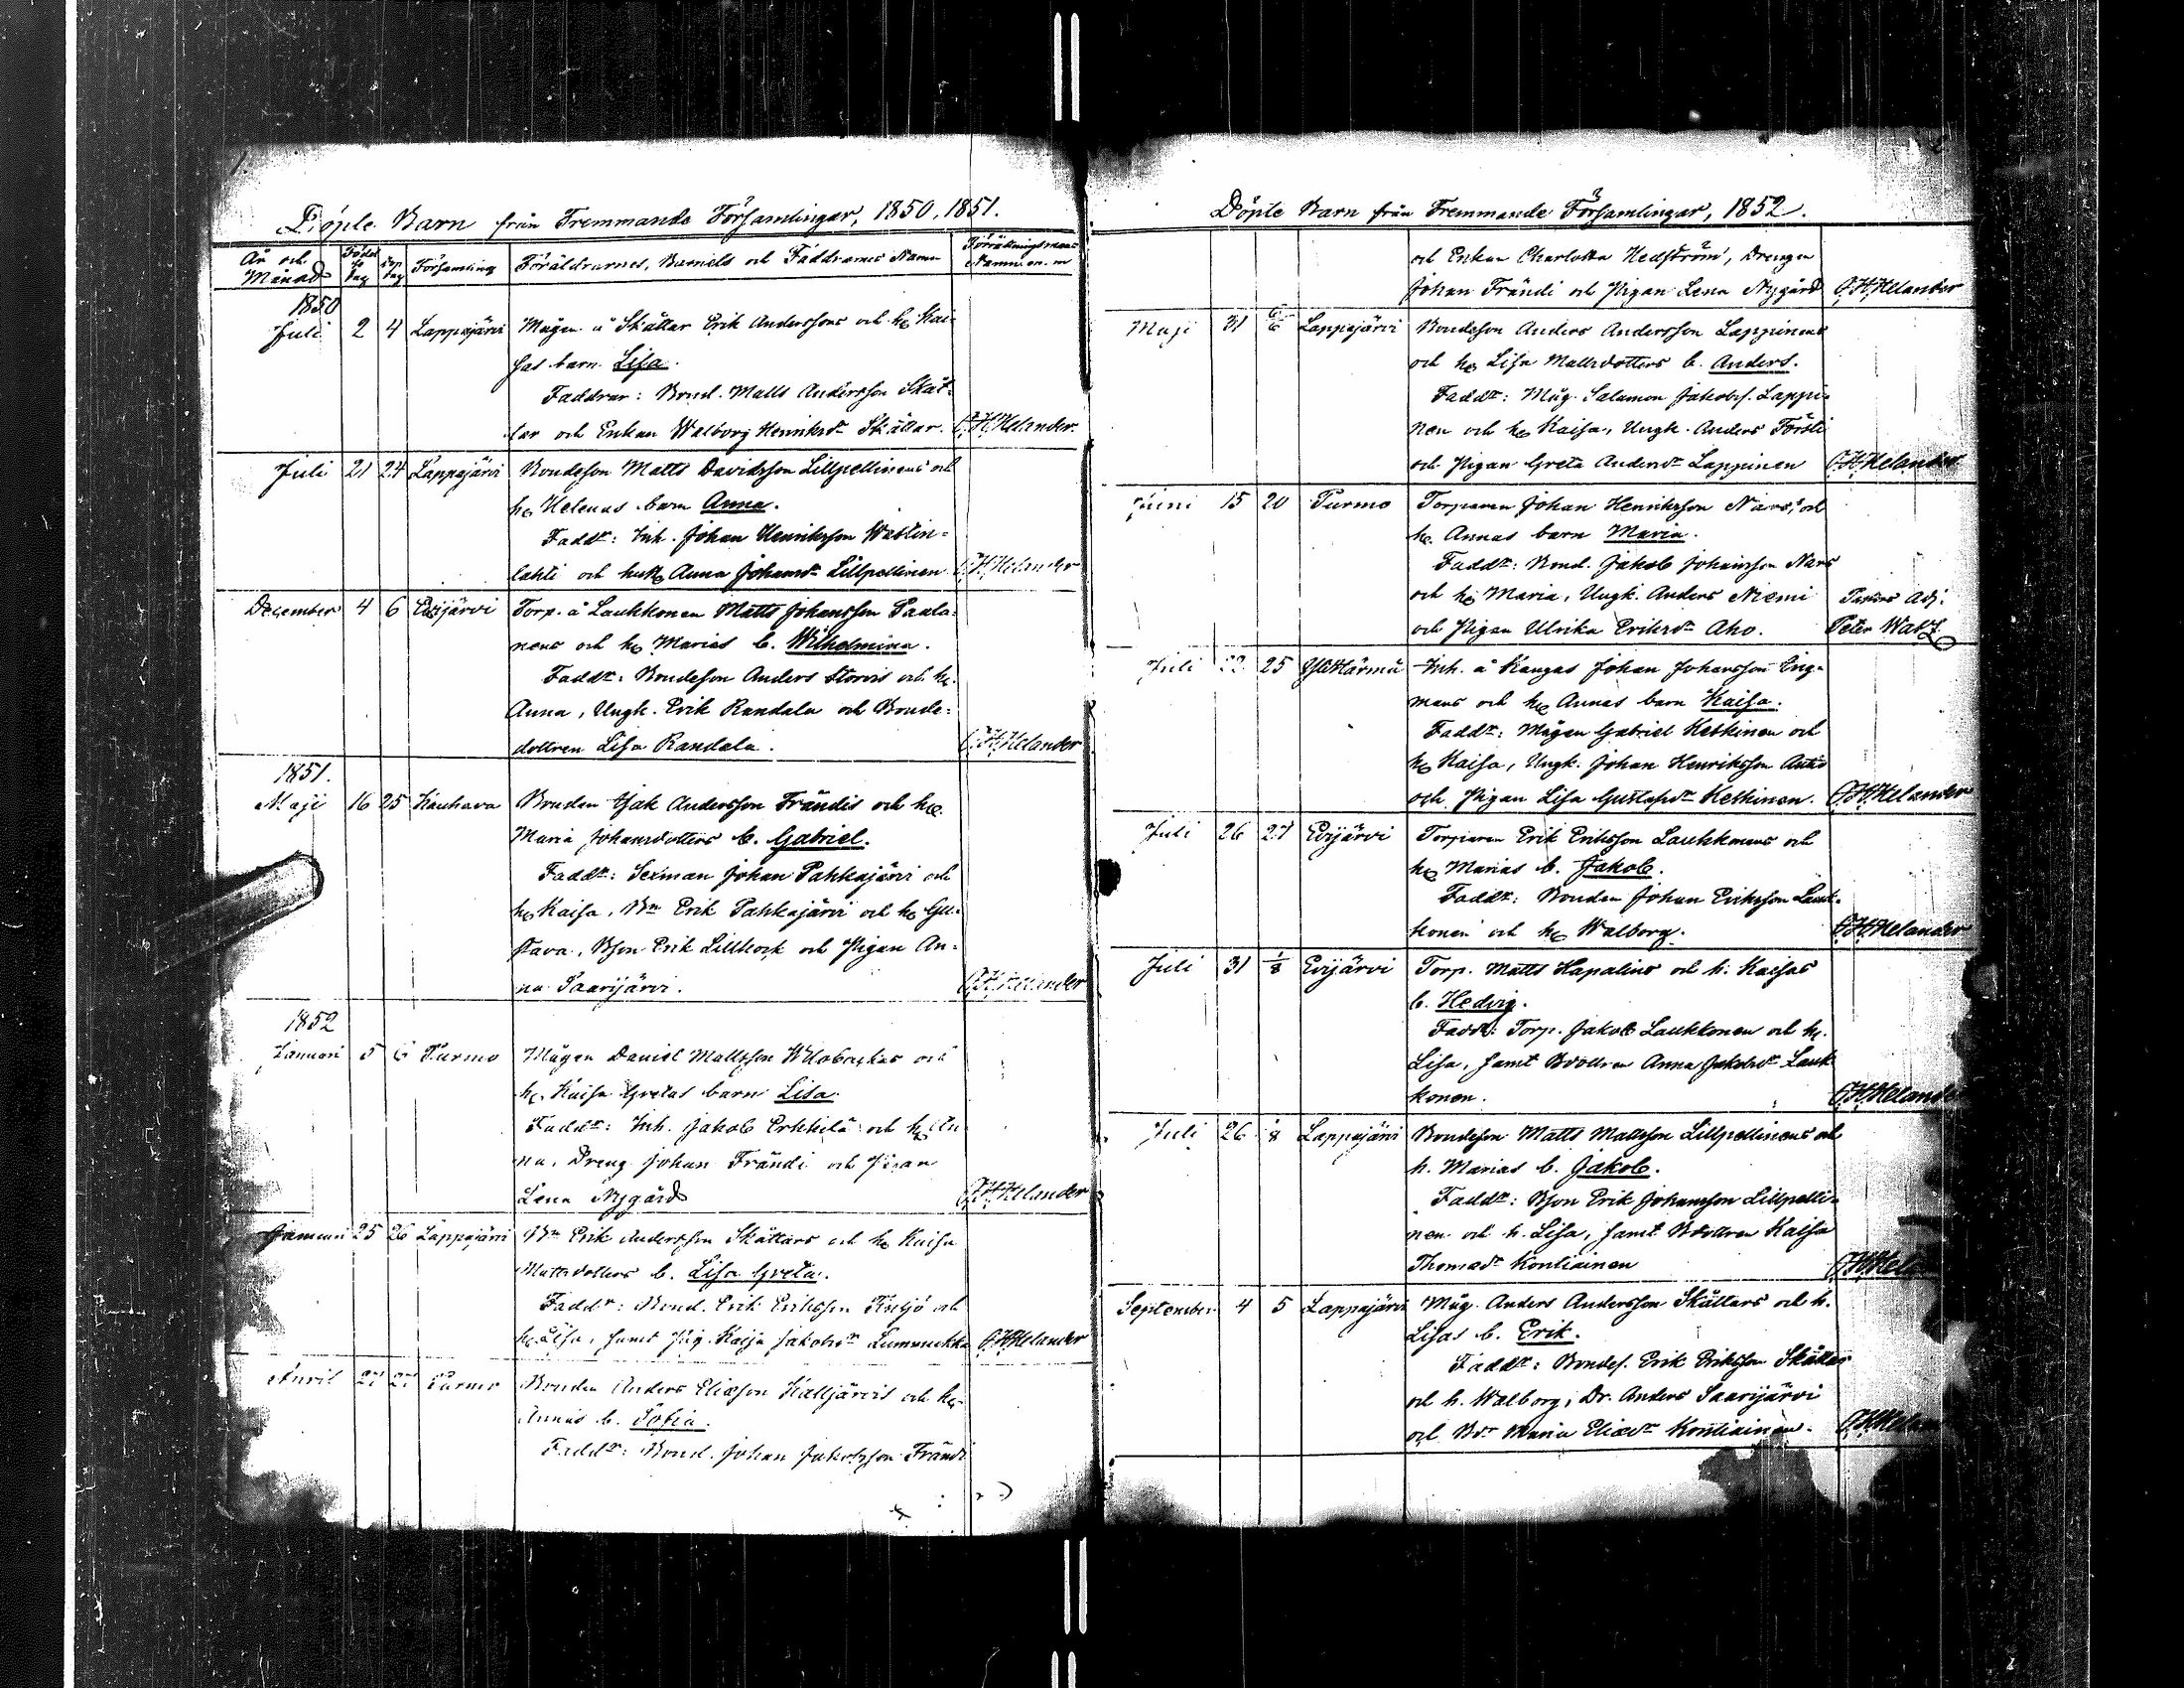 Döpte Barn från Fremmande Församlingar, 1850, 1851.
År och Månad Född Dag Döp. Dag Församling Föräldrarnes, Barnets och Faddrarnes Namn Förrättningsmans Namn
1850
Juli 2 4 Lappajärvi Mågen å Skåttar Erik Anderssons och h. Kai-
sas barn Lisa.
Faddrar: Bond. Matts Andersson Skåt-
tar och Enkan Walborg Henriksdr Skåttar. C.H.Helander
Juli 21 24 Lappajärvi Bondeson Matts Davidsson Lillpellinens och
h. Helenas barn Anna.
Faddr: Inh. Johan Henriksson Wäklin-
lahti och hu Anna Johansdr Lillpellinen C.H.Helander
December 4 6 Evijärvi Torp. å Laukkonen Matts Johansson Paala-
nens och h. Marias b. Wilhelmina.
Faddr: Bondeson Anders Storvis och h.
Anna, Ungk. Erik Randala och Bonde-
dottren Lisa Randala. C.H.Helander
1851.
Maji 16 25 Kauhava Bonden Isak Andersson Frändis och h.
Maria Johansdotters b. Gabriel.
Faddr: Sexman Johan Pahkajärvi och
h. Kaisa, Bn Erik Pahkajärvi och h. Gu-
stava, Bson Erik Lillkock och Pigan An-
na Saarijärvi. C.H.Helander
1852
Januari 5 6 Purmo Mågen Daniel Mattsson Wilobackas och
h. Kaisa Gretas barn Lisa.
Faddr: Inh. Jakob Erkkilä och h. An-
na, Dreng Johan Frändi och Pigan
Lena Nygård C.H.Helander
Januari 25 26 Lappajärvi Bn Erik Andersson Skåttars och h. Kaisa
Mattsdotters b. Lisa Greta.
Faddr: Bond. Erik Eriksson Finsjö och
h. Lisa, samt Pig. Kaisa Jakobsdr Lummukka C.H.Helander
April 27 27 Purmo Bonden Anders Eliasson Kalljärvis och h.
Annas b. Sofia.
Faddr: Bond. Johan Jakobsson Frändi
Döpte Barn från Fremmande Församlingar, 1852.
och Enkan Charlotta Hedström, Drengen
Johan Frändi och Pigan Lena Nygård C.H.Helander
Maji 31 6/6 Lappajärvi Bondeson Anders Andersson Lappinens
och h. Lisa Mattsdotters b. Anders.
Faddr: Måg. Salamon Jakobss. Lappi-
nen och h. Kaisa, Ungk. Anders Försti
och Pigan Greta Andersdr Lappinen C.H.Helander
Juni 15 20 Purmo Torparen Johan Henriksson Nars, och
h. Annas barn Maria.
Faddr: Bond. Jakob Johansson Nars
och h. Maria, Ungk. Anders Niemi Pastors Adj.
och Pigan Ulrika Eriksdr Aho. Peter Watz
Juli 22 25 Ylihärmä Inh. å Kangas Johan Johansson Eng-
mans och h. Annas barn Kaisa.
Faddr: Mågen Gabriel Keskinen och
h. Kaisa, Ungk. Johan Henriksson Antio
och Pigan Lisa Gustafsdr Keskinen. C.H.Helander
Juli 26 27 Evijärvi Torparen Erik Eriksson Laukkonens och
h. Marias b. Jakob.
Faddr: Bonden Johan Eriksson Lauk-
konen och h. Walborg. C.H.Helander
Juli 31 1/8 Evijärvi Torp. Matts Hapalins och h. Kaisas
b. Hedvig.
Faddr: Torp. Jakob Laukkonen och h.
Lisa, samt Bdottren Anna Jakobsdr Lauk
konen. C.H.Helander
Juli 26 1/8 Lappajärvi Bondeson Matts Mattsson Lillpellinens och
h. Marias b. Jakob.
Faddr: Bson Erik Johansson Lillpelli-
nen och h. Lisa, samt Bdottren Kaisa
Thomasdr Kontiainen C.H.Helander
September 4 5 Lappajärvi Måg. Anders Andersson Skåttars och h.
Lisas b. Erik.
Faddr: Bondes. Erik Eriksson Skåttar
och h. Walborg, Dr. Anders Saarijärvi
och Bdr Maria Eliædr Kontiainen. C.H.Helander